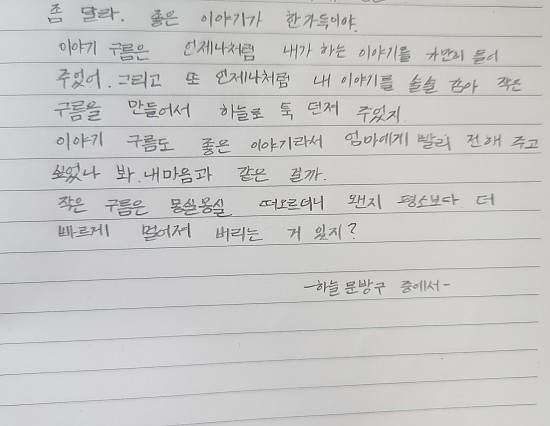 좀 달라. 좋은 이야기가 한가득이야.
이야기 구름은 언제나처럼 내가 하는 이야기를 가만히 들어
주었어. 그리고 또 언제나처럼 내 이야기를 솔솔 감아 작은
구름을 만들어서 하늘로 툭 던져 주었지.
이야기 구름도 좋은 이야기라서 엄마에게 빨리 전해 주고
싶었나 봐. 내마음과 같은 걸까.
작은 구름은 몽실몽실 떠오르더니 왠지 평소보다 더
빠르게 멀어져 버리는 거 있지?
-하늘 문방구 중에서-